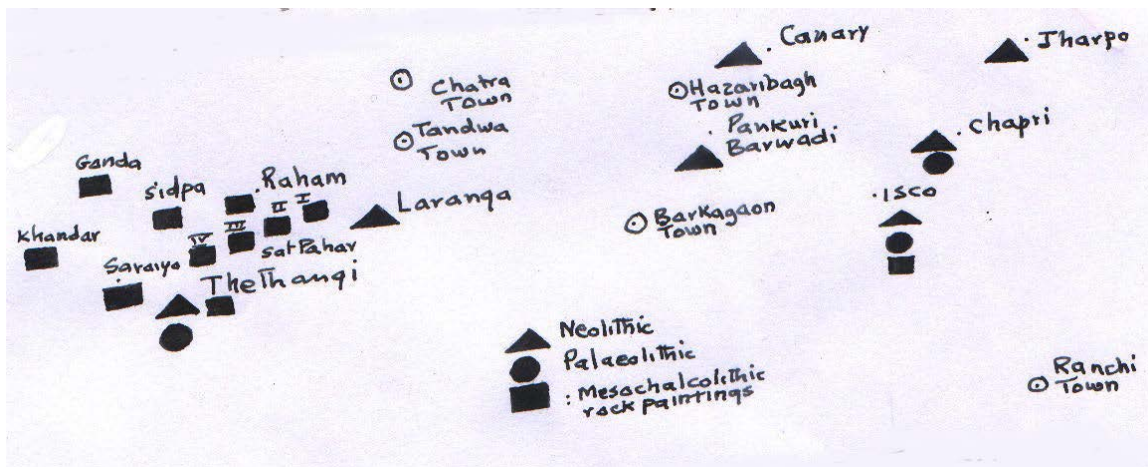 Canary
Jharpo
Chatra
Town
Hazaribagh
Town
Tandwa
Town
Pankuri
Barwadi
Chapri
Ganda
Sidpa
Raham
II I
Laranga
ISCO
Khandar
IV III
Satpahar
Barkagaon
Town
Saraiya
Thethangi
Neolithic
Palaeolithic
: Mesochalcolithic
rock paintings
Ranchi
Town